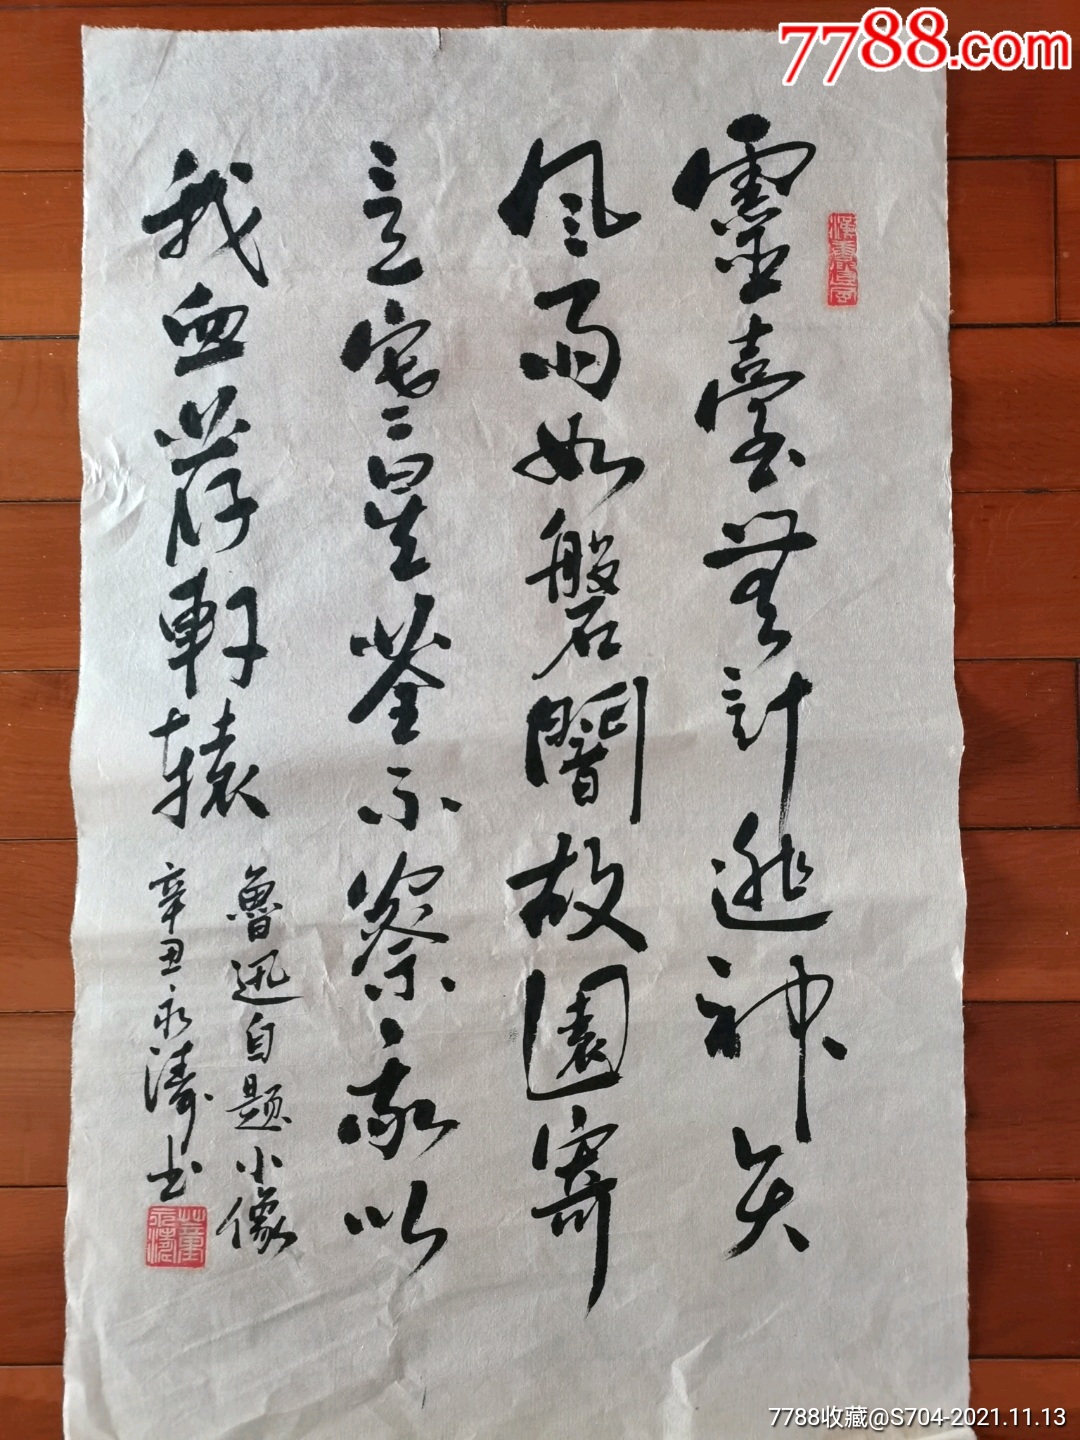 7788.com
靈臺無計逃神矢
风雨如磐闇故園寄
意寒星荃不察我以
我血荐軒辕
魯迅自题小像
辛丑永濤书
董永濤
7788收藏@S704-2021.11.13